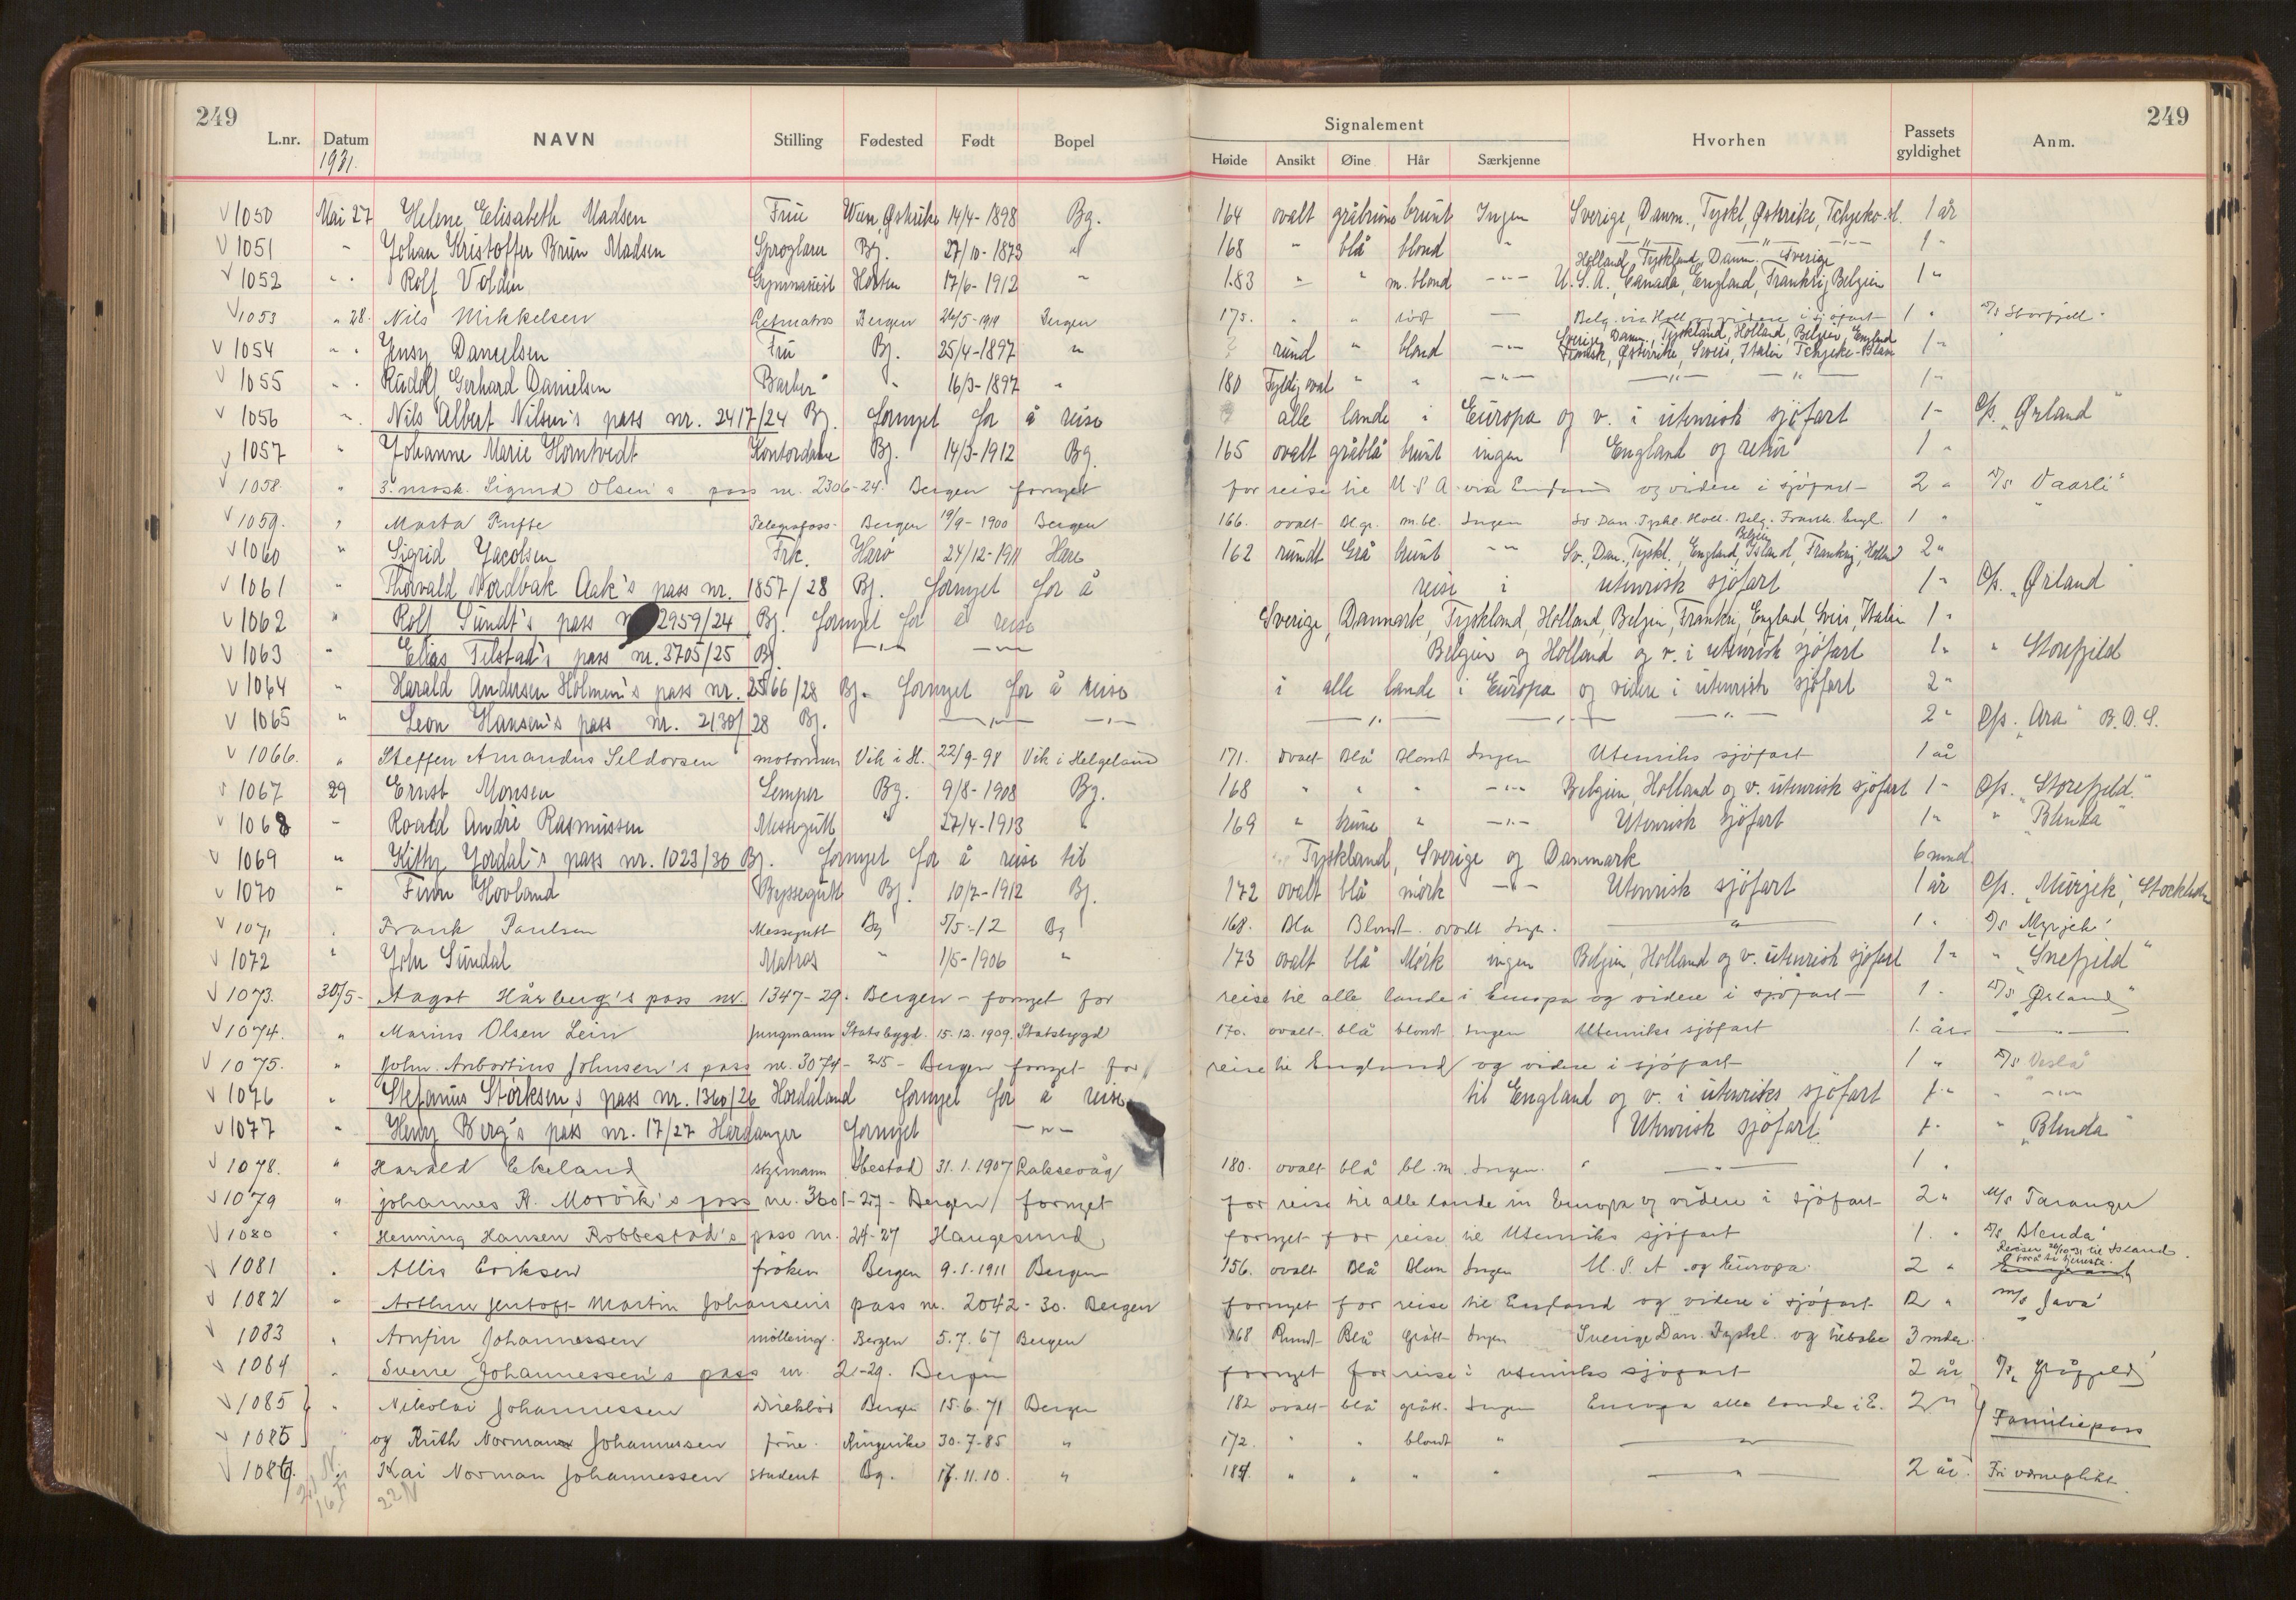 249
249
L.nr. Datum NAVN Stilling Fødested Født Bopel
1931.
Signalement Hvorhen Passets gyldighet Anm.
Høide Ansikt Øine Hår Særkjenne
1050 Mai 27 Helene Elisabeth Madsen Frue Wien, Østrike 14/4-1898 Bg. 164 ovalt gråbrune brunt Ingen Sverige, Danm., Tyskl, Østrike, Tchjeko-sl. 1 år
1051 " Johan Kristoffer Brun Madsen Sproglærer Bg. 27/10-1873 " 168 " blå blond " —"— —"— —"— 1 "
Holland, Tyskland, Danm. Sverige
1052 " " Rolf Volden Gymnasiast Horten 17/6-1912 " 183 " " m. blond —"— U.S.A., Canada, England, Frankrig, Belgien 1 "
1053 " 28. Nils Mikkelsen Letmatros Bergen Bergen 175. " " rødt — Belg. via Holl. og videre i sjøfart 1 "
Sverige, Danm., Tyskland, Holland, Belgien, England
1054 " " Jensy Danielsen Fru Bg. 25/4-1897 " rund " blond —"— Østerrike, Sveis, Italien 1 "
1055 " " Rudolf Gerhard Danielsen Barber " 16/3-1897 " 180 Fyldig oval " " —"— —"— —"— 1 "
1056 " Nils Albert Nilsen's pass nr. 2417/24 Bg. fornyet for å reise alle lande i Europa og v. i utenrisk sjøfart 1 " "Ørland"
1057 " Johanne Marie Horntvedt Kontordame Bg. 14/3-1912 Bg. 165 ovalt gråblå brunt ingen England og retur 1 "
1058. " 3. mask. Sigurd Olsen's pass nr. 2306-24. Bergen fornyet for reise til U.S.A. via England og videre i sjøfart- 2 " D/S Vaarli"
1059. " Marta Telegrafass. Bergen 19/9-1900 Bergen 166. ovalt Bl.gr. m.bl. Ingen Sv. Dan. Tyskl. Holl. Belg. Frank. Engl. 1 "
Belgien
1060 " Sigrid Jacobsen Frk. Harø 24/12-1911 Harø 162 rundt Grå brunt —"— Sv., Dan., Tyskl., England, Island, Frankrig, Holland 2 "
1061 " Thorvald Nordbak Aak's pass nr. 1857/28 Bg. fornyet for å reise i utenrisk sjøfart 1 " "Ørland"
1062 " Rolf Sundt's pass 2959/24 Bg. fornyet for å reise Sverige, Danmark, Tyskland, Holland, Belgien, Frankri, England, Sveis, Italien 1 "
1063 " Elias Tilstad's pass nr. 3705/25 Bg. —"— —"— Belgien og Holland og v. i utenrisk sjøfart 1 " " Storefjeld
1064 " Harald Andersen Holmen's pass nr. 2566/28 Bg. fornyet for å reise i alle lande i Europa og videre i utenrisk sjøfart 2 "
1065 " Leon Hansen's pass nr. 2130/28 Bg. —"— —"— —"— —"— —"— 2 " "Ara" B.D.S.
1066. " Steffen Amandus Seldorsen motorman Vik i H. 22/9-98 Vik i Helgeland 171. ovalt Blå Blondt Ingen Utenriks sjøfart 1 år
1067 29 Ernst Monsen Lemper Bg. 9/8-1908 Bg. 168 " " " —"— Belgien, Holland og v. utenrisk sjøfart 1 " "Storefjeld."
1068 " Roald André Rasmussen Messegutt " 27/4-1913 " 169 " brune " —"— Utenrisk sjøfart 1 " " "Blenda"
1069 " Kitty Jordal's pass nr. 1023/30 Bg. fornyet for å reise til Tyskland, Sverige og Danmark 6 mnd.
1070 " Finn Hovland Byssegutt Bg. 10/7-1912 Bg. 172 ovalt blå mørk —"— Utenrisk sjøfart 1 år "Murjek", Stockholm
1071 " Frank Paulsen Messegutt Bg 5/5-12 Bg 168. Blå Blondt ovalt Ing. —"— 1 " D/S Myrjek"
1072 " John Sundal Matros " 1/5-1906 " 173 ovalt blå Mørk ingen Belgien, Holland og v. utenrisk sjøfart 1 " " "Snefjeld"
1073. 30/5- Aagot Hårberg's pass nr. 1347-29. Bergen - fornyet for reise til alle lande i Europa og videre i sjøfart- 1 " D/S "Ørland"
1074. " Marius Olsen Lein Jungmann Statsbygd. 15.12.1909. Statsbygd 170. ovalt. blå blondt Ingen Utenriks sjøfart 1. år. —"—
1075. " John Johnsen's pass nr. 3074- Bergen fornyet for reise til England og videre i sjøfart 1 " D/S Veslå
1076 " Stefanus Størksen,s pass nr. 1360/26 Hordaland fornyet for å reise til England og v. i utenriks sjøfart 1 " " —"—
1077 " Henry Berg's pass nr. 17/27 Hardanger fornyet —"— Utenrisk sjøfart 1 " " "Blenda"
1078. " Harald Ekeland styrmann Ibestad 31.1.1907 Laksevåg 180. ovalt blå bl.m. Ingen. —"— 1 "
1079 " Johannes A. pass nr. 3601-27- Bergen fornyet for reise til alle lande in Europa og videre i sjøfart- 2 " M/S Taranger
1080 " Henning Hansen Robbestad's pass nr. 24-27 Haugesund fornyet for reise til Utenriks sjøfart 1. " D/S Blenda"
1081 " Allis Eriksen frøken Bergen 9.1.1911 Bergen 156. ovalt Blå Blon Ingen U.S.A og Europa. 2 " Reiser til Island.
1082 " Arthur Jentoft Martin Johansens pass nr. 2042-30. Bergen fornyet for reise til England og videre i sjøfart 2 " m/s Java"
1083 " Arnfin Johannessen Bergen 5.7.67 Bergen 168 Rundt Blå Grått Ingen Sverige Dan. Tyskl. og tilbake 3 mder.
1084 " Sverre Johannessen's pass nr. 2-29. Bergen fornyet for reise i utenriks sjøfart 2 år
1085 " Nikolai Johannessen Direktør Bergen 15.6.71 Bergen 182 ovalt blå grått. Ingen Europa alle lande i E. 2 "
Familiepass
1085 og Ruth Norman Johannessen frue. Ringerike 30.7.85 " 172. " " blondt " —"—
1086. Kai Norman Johannessen student Bg. 17.11.10. " 184. " " " " —"— 2 år. Fri værneplikt.
22 N